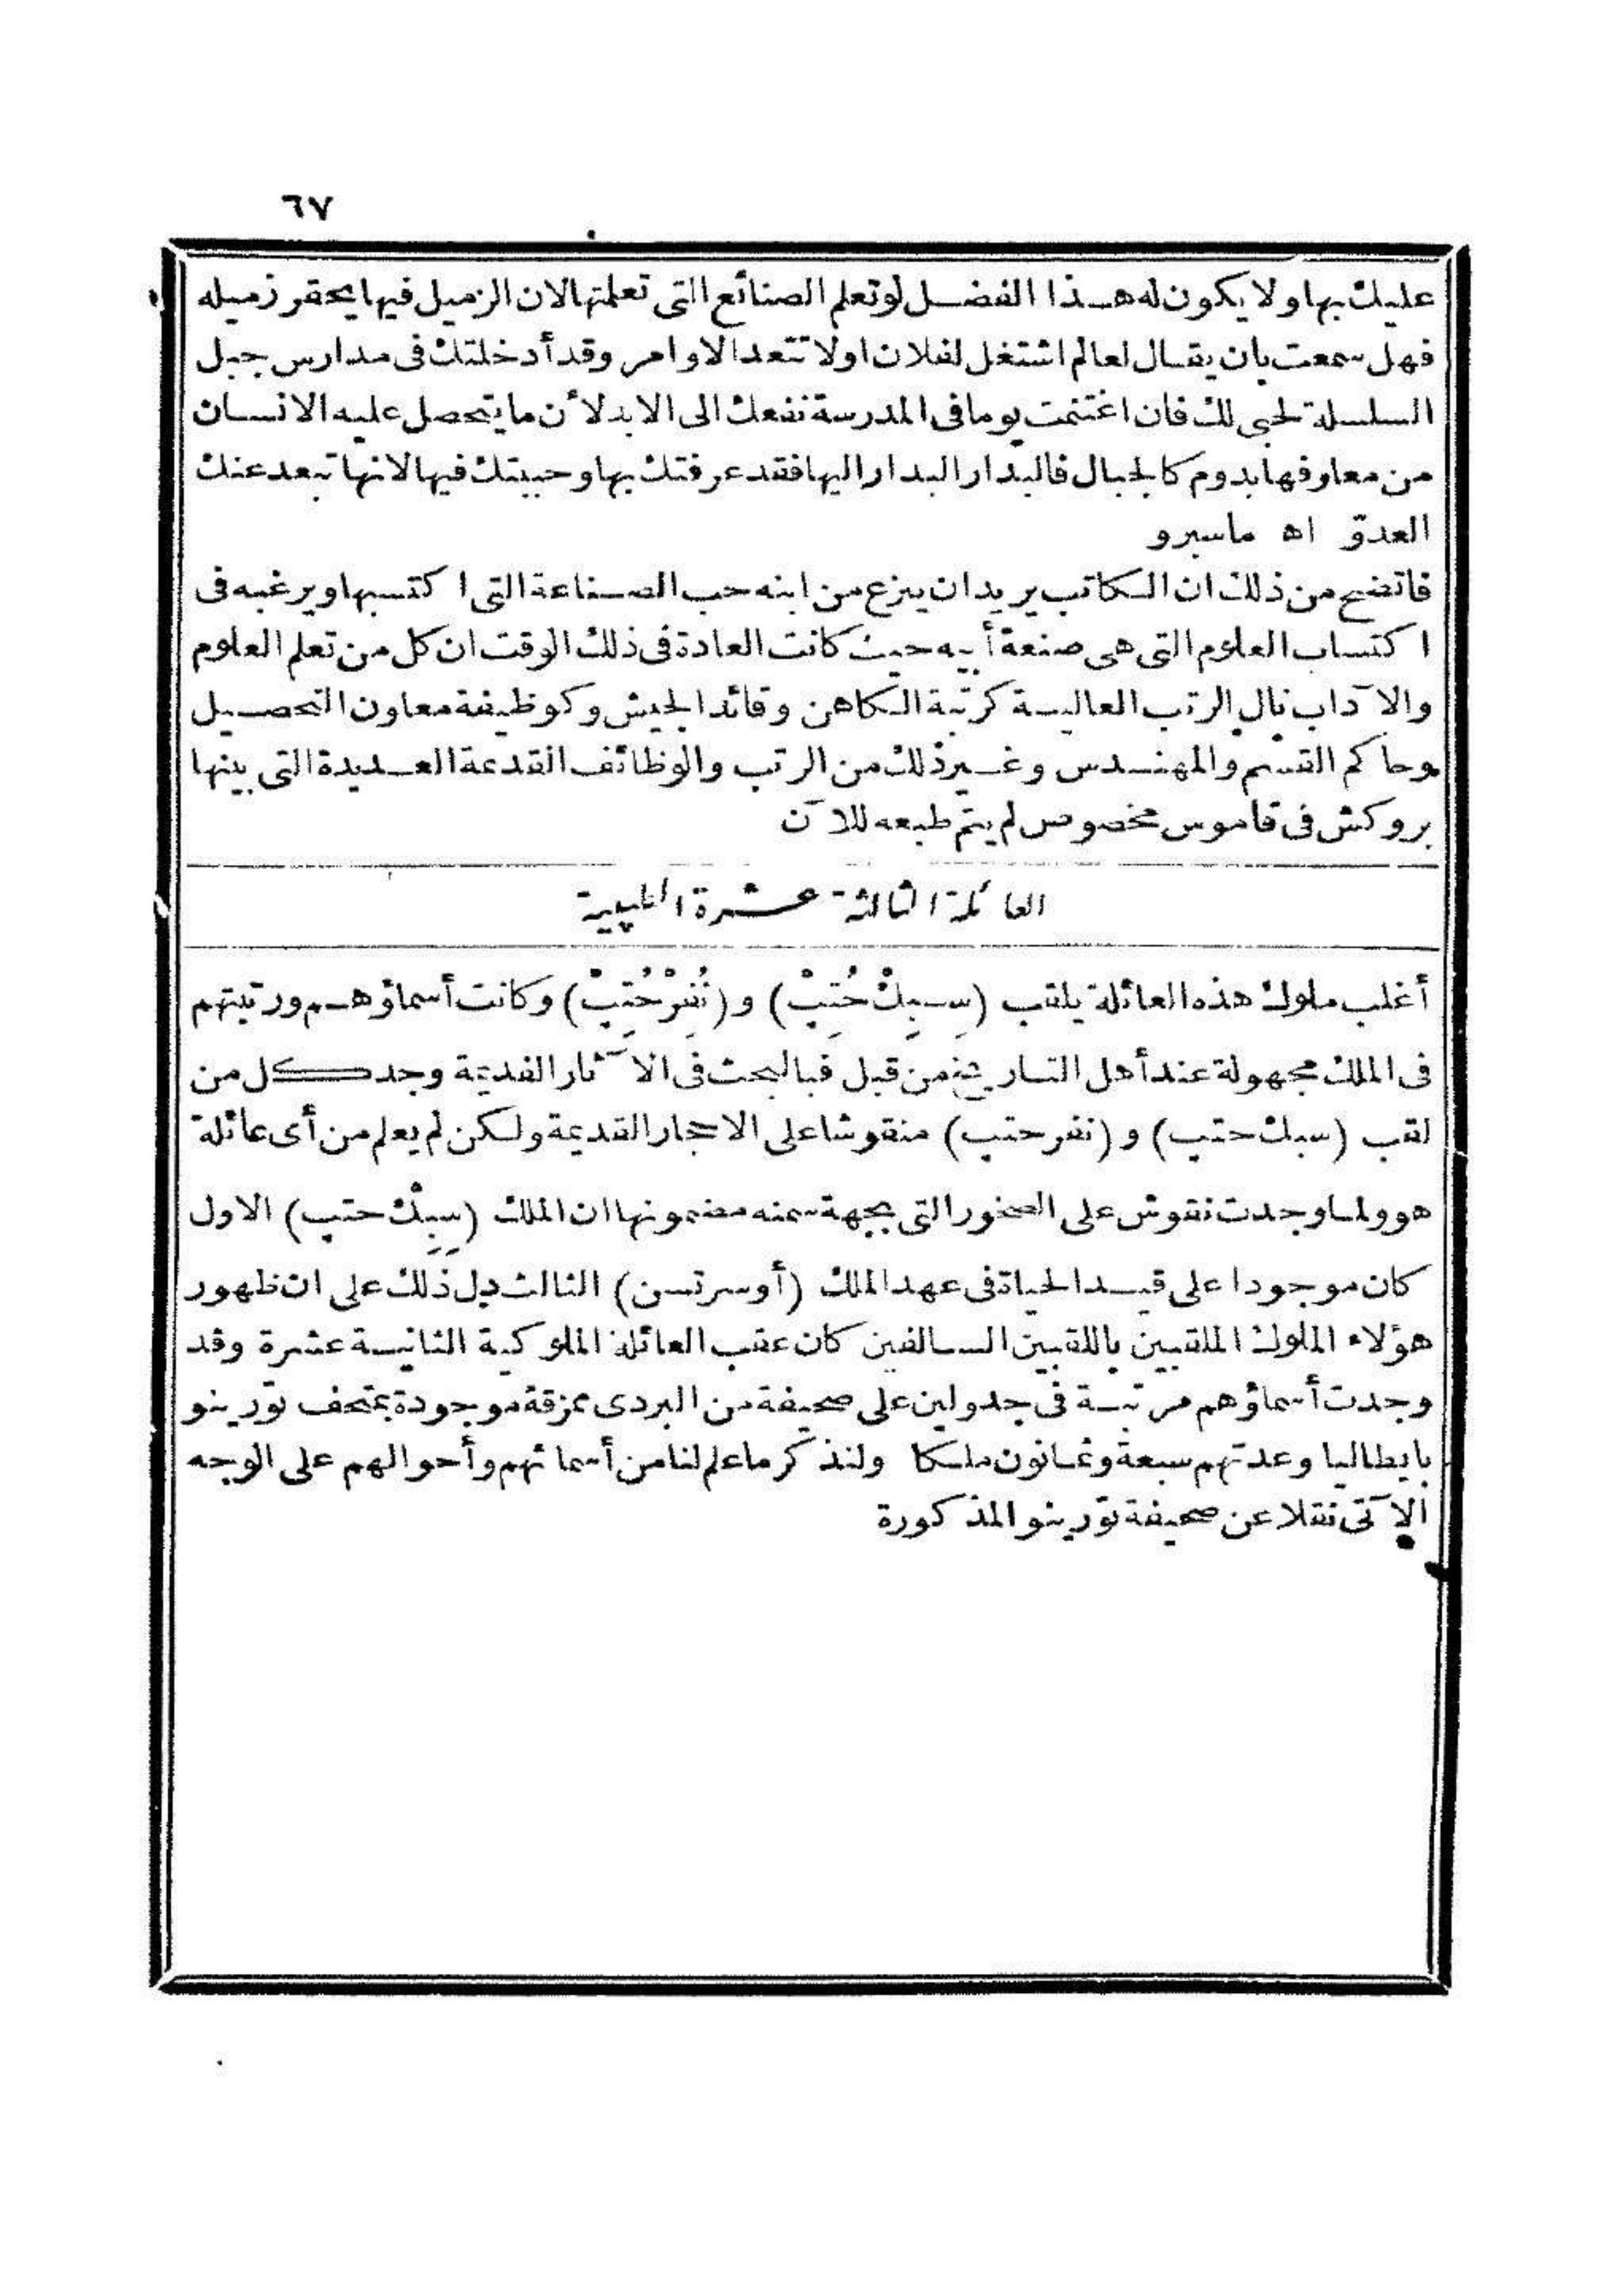 ٦٧
عليك بها ولا يكون له هذا الفضل لو تعلم الصنائع التي تعلمتها لان الزميل فيها يحقر زميله
فهل سمعت بان يقال لعالم اشتغل لفلان اولا تتعد الاوامر وقد أدخلتك في مدارس جبل
السلسلة لحبي لك فان اغتنمت يوما في المدرسة نفعك الى الابد لأن ما يتحصل عليه الانسان
من معارفها يدوم كالجبال فالبدار البدار اليها فقد عرفتك بها وحببتك فيها لانها تبعد عنك
العدوّ اه ماسبرو
فاتضح من ذلك ان الكاتب يريد ان ينزع من ابنه حب الصناعة التي اكتسبها ويرغبه في
اكتساب العلوم التي هي صنعة أبيه حيث كانت العادة في ذلك الوقت ان كل من تعلم العلوم
والآداب نال الرتب العالية كرتبة الكاهن وقائد الجيش وكوظيفة معاون التحصيل
وحاكم القسم والمهندس وغير ذلك من الرتب والوظائف القديمة العديدة التي بينها
بروكش في قاموس مخصوص لم يتم طبعه للآن
العائلة الثالثة عشرة الطيبية
أغلب ملوك هذه العائلة يلقب (سِبِكْ حُتِبْ) و (نُفِرْ حُتِبْ) وكانت أسماؤهم ورتبتهم
في الملك مجهولة عند أهل التاريخ من قبل فبالبحث في الآثار القديمة وجد كل من
لقب (سبك حتب) و (نفر حتب) منقوشا على الاحجار القديمة ولكن لم يعلم من أى عائلة
هو ولما وجدت نقوش على الصخور التي بجهة سمنه مضمونها ان الملك (سِبِكْ حتب) الاول
كان موجودا على قيد الحياة في عهد الملك (أوسرتسن) الثالث دل ذلك على ان ظهور
هؤلاء الملوك الملقبين باللقبين السالفين كان عقب العائلة الملوكية الثانية عشرة وقد
وجدت أسماؤهم مرتبة في جدولين على صحيفة من البردى ممزقة موجودة بمتحف تورينو
بايطاليا وعدتهم سبعة وثمانون ملكا ولنذكر ما علم لنا من أسمائهم وأحوالهم على الوجه
الآتى نقلا عن صحيفة تورينو المذكورة